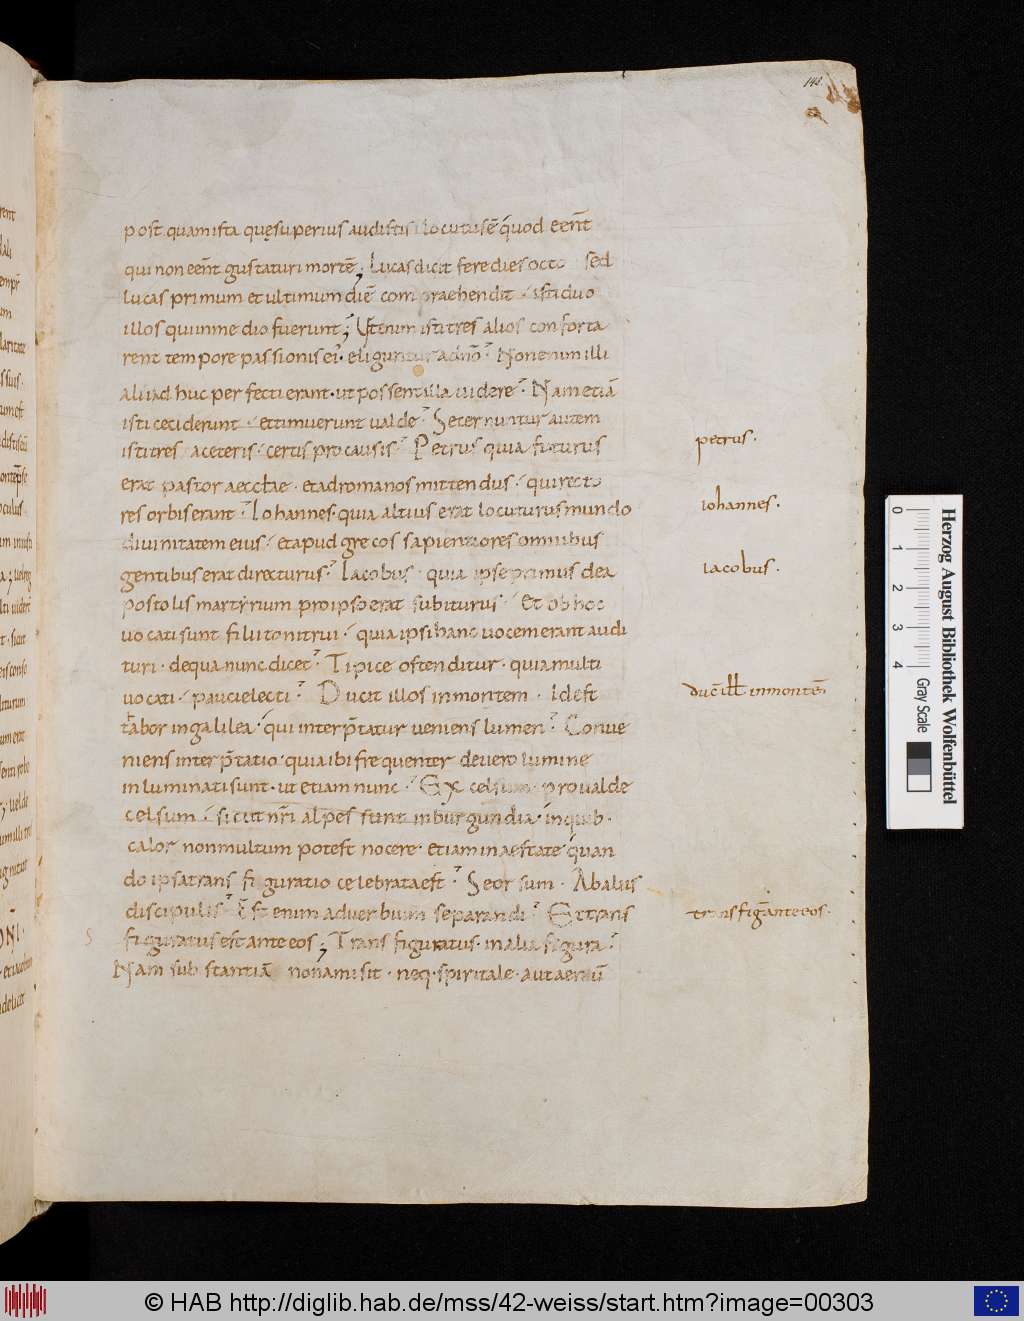 143
post quam ista quę superius audistis locutus ē quod eent̄
qui non eent̄ gustaturi mortē; Lucas dicit fere dies octo sed
lucas primum et ultimum diē compraehendit · isti duo
illos qui in medio fuerunt; Ut enim isti tres alios conforta
rent tempore passionis ei' · eliguntur a dn̄o · Non enim illi
ali' adhuc perfecti erant · ut possent illa uidere · Nam etiā
isti ceciderunt · et timuerunt ualde · Secernuntur autem
isti tres a ceteris · certis pro causis · Petrus quia futurus
erat pastor aecclae · et ad romanos mittendus · qui recto
res orbis erant · Iohannes · quia altius erat locuturus mundo
diuinitatem eius · et apud grecos sapientiores omnibus
gentibus erat directurus · Iacobus · quia ipse primus de a
postolis martyrium pro ipso erat subiturus · Et ob hoc
uocati sunt filii tonitrui · quia ipsi hanc uocem erant audi
turi · de qua nunc dicet · Tipice ostenditur · quia multi
uocati · pauci electi · Ducit illos in montem · Id est
tabor in galilea · qui interp̄tatur ueniens lumen · Conue
niens interp̄tatio · quia ibi frequenter de uero lumine
inluminati sunt · ut etiam nunc · Excelsum · pro ualde
celsum · sicut nr̄i alpes sunt in burgundia · in quib·
calor non multum potest nocere · etiam in aestate quan
do ipsa transfiguratio celebrata est · Seorsum · Ab aliis
discipulis · Est enim aduerbium separandi · Et trans
figuratus est ante eos; Transfiguratus · in alia figura ·
Nam substantiā non amisit · neq· spiritale · aut aeriū
petrus·
iohannes·
iacobus·
duc̄ ill in montē
transfig̅ ante eos·
S
0 1 2 3 4
Herzog August Bibliothek Wolfenbüttel
Gray Scale
© HAB http://diglib.hab.de/mss/42-weiss/start.htm?image=00303